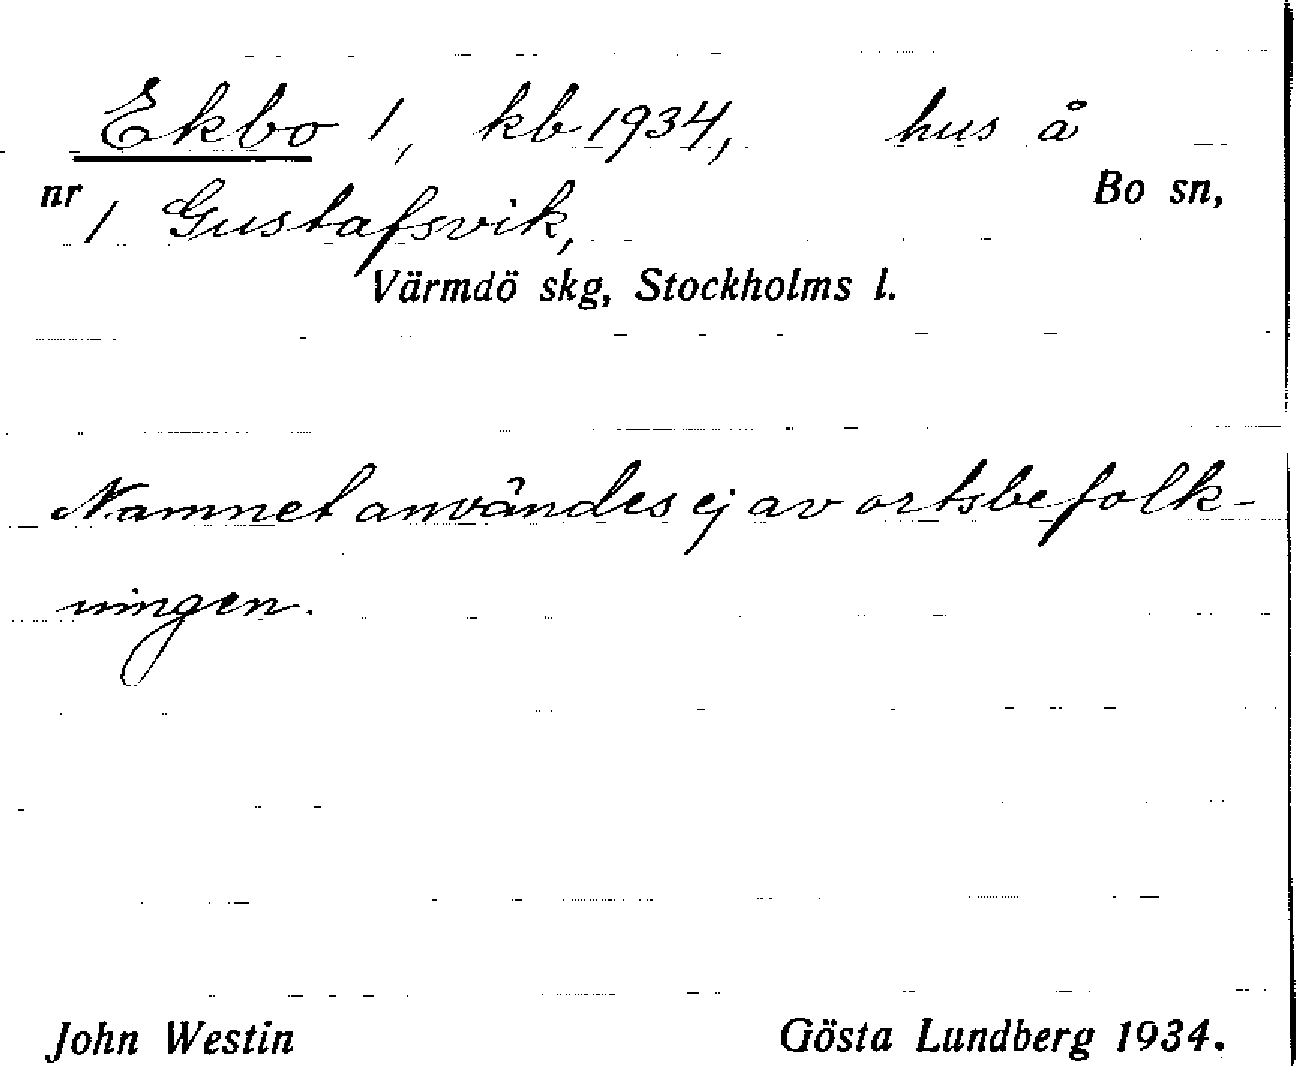 Ekbo 1, kb 1934, hus å
nr 1 Gustafsvik, Bo sn,
Värmdö skg, Stockholms l.
Namnet användes ej av ortsbefolk-
ningen.
John Westin Gösta Lundberg 1934.